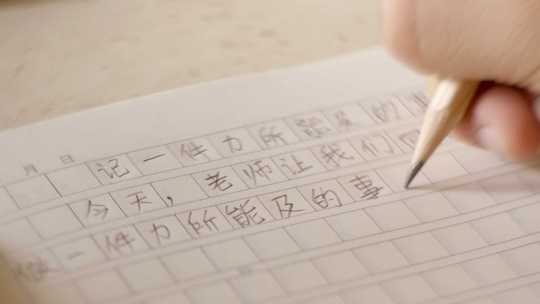 月 日
记一件力所能及的
今天，老师让我们回
做一件力所能及的事